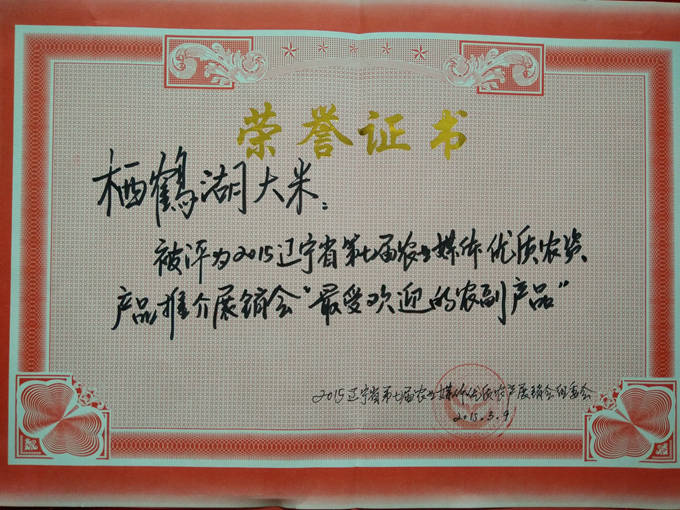 荣誉证书
栖鹤湖大米：
被评为2015辽宁省第七届农业媒体优质农资
产品推介展销会“最受欢迎的农副产品”
2015辽宁省第七届农业媒体优质农产展销会组委会
2015.3.9